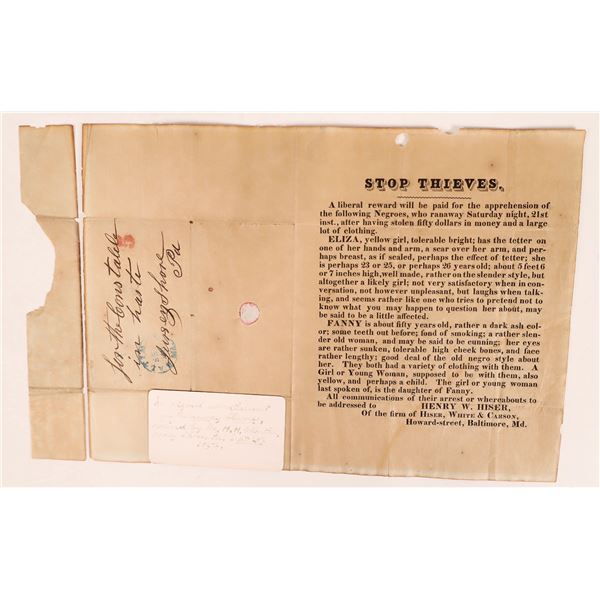 STOP THIEVES.
A liberal reward will be paid for the apprehension of
the following Negroes, who ranaway Saturday night, 21st
inst., after having stolen fifty dollars in money and a large
lot of clothing.
ELIZA, yellow girl, tolerable bright; has the tetter on
one of her hands and arm, a scar over her arm, and per-
haps breast, as if scaled, perhaps the effect of tetter; she
is perhaps 23 or 25, or perhaps 26 years old; about 5 feet 6
or 7 inches high, well made, rather on the slender style, but
altogether a likely girl; not very satisfactory when in con-
versation, not however unpleasant, but laughs when talk-
ing, and seems rather like one who tries to pretend not to
know what you may happen to question her about, may
be said to be a little affected.
FANNY is about fifty years old, rather a dark ash col-
or; some teeth out before; fond of smoking; a rather slen-
der old woman, and may be said to be cunning; her eyes
are rather sunken, tolerable high cheek bones, and face
rather lengthy; good deal of the old negro style about
her. They both had a variety of clothing with them. A
Girl or Young Woman, supposed to be with them, also
yellow, and perhaps a child. The girl or young woman
last spoken of, is the daughter of Fanny.
All communications of their arrest or whereabouts to
be addressed to HENRY W. HISER,
Of the firm of HISER, WHITE & CARSON,
Howard-street, Baltimore, Md.
for the Constable
in haste
Jersey Shore
Pa